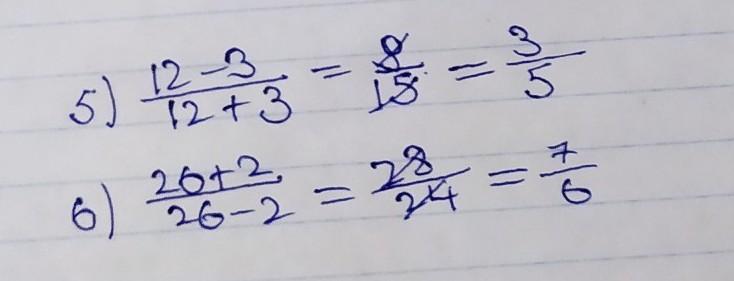 5) (12-3)/(12+3) = 9/15 = 3/5
6) (26+2)/(26-2) = 28/24 = 7/6